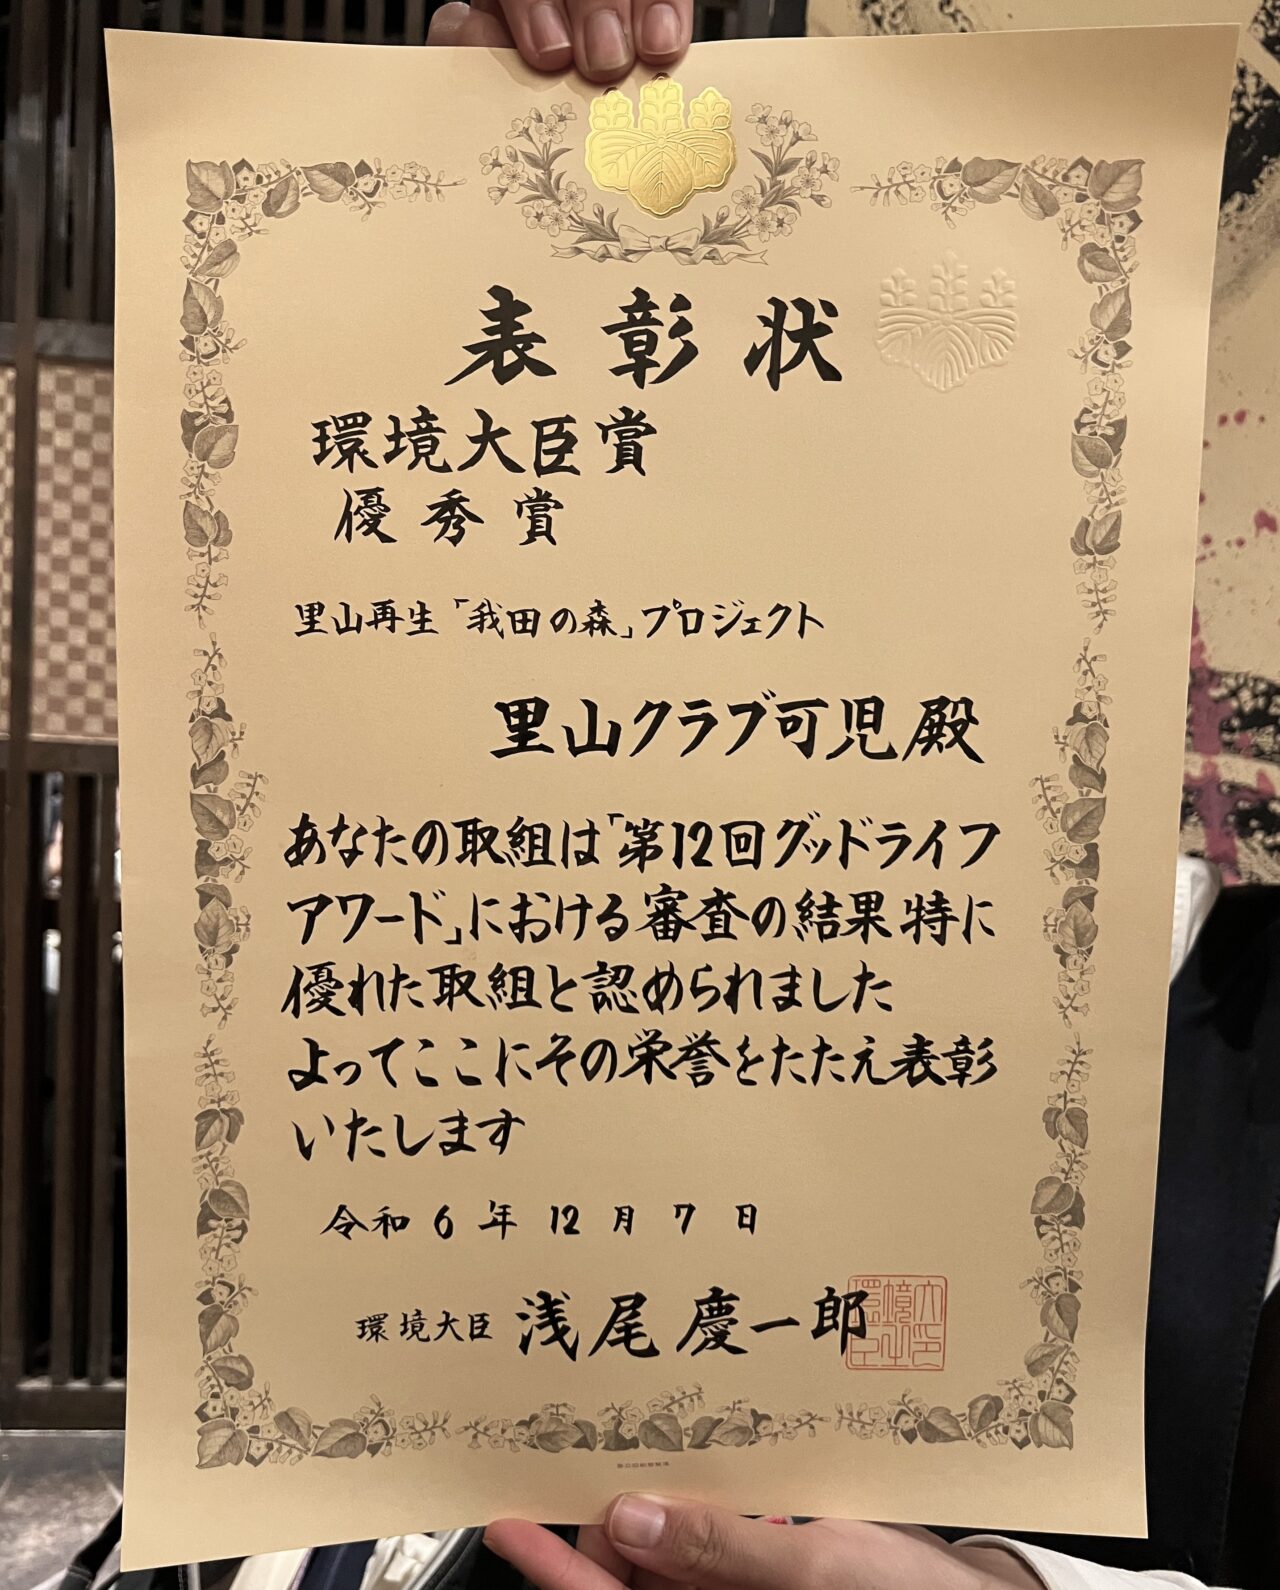 表彰状
環境大臣賞
優秀賞
里山再生「我田の森」プロジェクト
里山クラブ可児殿
あなたの取組は「第12回グッドライフ
アワード」における審査の結果特に
優れた取組と認められました
よってここにその栄誉をたたえ表彰
いたします
令和6年12月7日
環境大臣 浅尾慶一郎